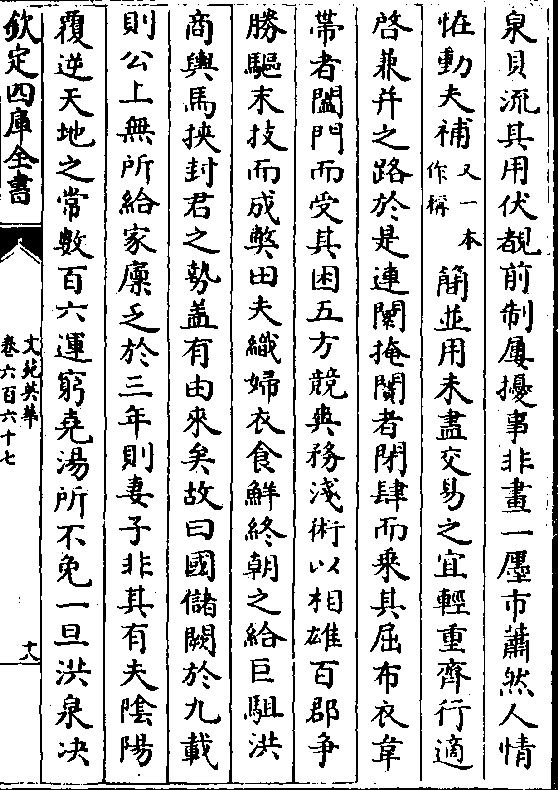 泉貝流其用伏覩前制屢擾事非畫一壥市蕭然人情
恠動夫補又一本作稱簡並用未盡交易之宜輕重齊行適
啓兼并之路於是連闤掩闠者閉肆而乘其屈布衣韋
帶者闔門而受其困五方競興務淺術以相雄百郡争
勝驅末技而成獘田夫織婦衣食鮮終朝之給巨駔洪
商輿馬挾封君之勢盖有由來矣故曰國儲闕於九載
則公上無所給家廩乏於三年則妻子非其有夫陰陽
覆逆天地之常數百六運窮堯湯所不免一旦洪泉决
欽定四庫全書
文苑英華
卷六百六十七
十八